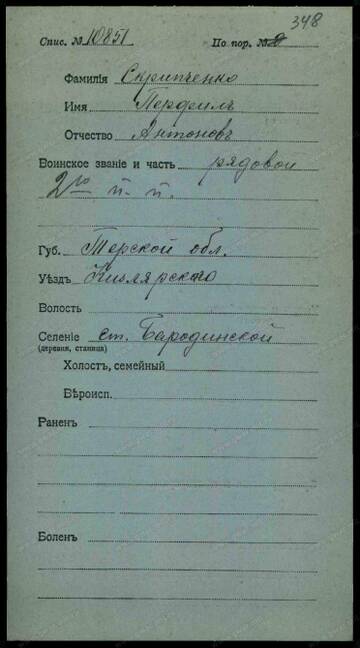 348
Спис. № 10851 По пор. №
Фамилія Скрипченко
Имя Перфилъ
Отчество Антоновъ
Воинское званіе и часть рядовой
2го п. п.
Губ. Терской обл.
Уѣздъ Кизлярскаго
Волость
Селеніе ст. Бородинской
(деревня, станица)
Холостъ, семейный
Вѣроисп.
Раненъ
Боленъ